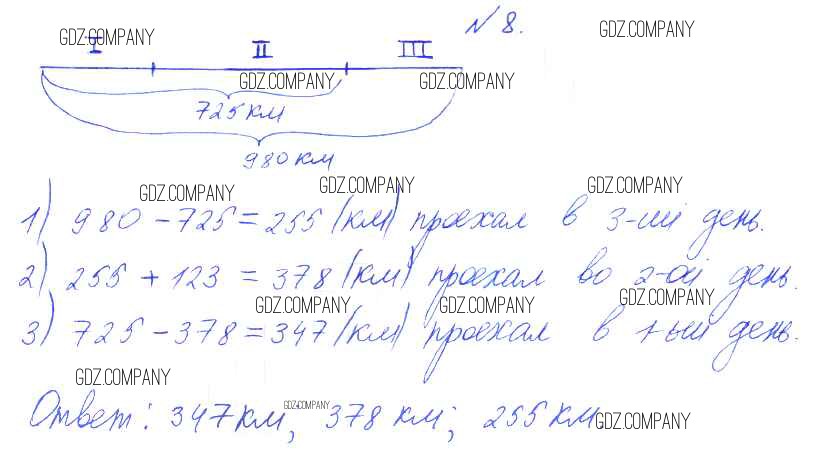 № 8.
GDZ.COMPANY GDZ.COMPANY
I II III
GDZ.COMPANY GDZ.COMPANY
725 км
980 км
GDZ.COMPANY GDZ.COMPANY GDZ.COMPANY
1) 980 - 725 = 255 (км) проехал в 3-ий день.
2) 255 + 123 = 378 (км) проехал во 2-ой день.
GDZ.COMPANY GDZ.COMPANY GDZ.COMPANY
3) 725 - 378 = 347 (км) проехал в 1-ый день.
GDZ.COMPANY
Ответ: 347 км, 378 км; 255 км.
GDZ.COMPANY GDZ.COMPANY